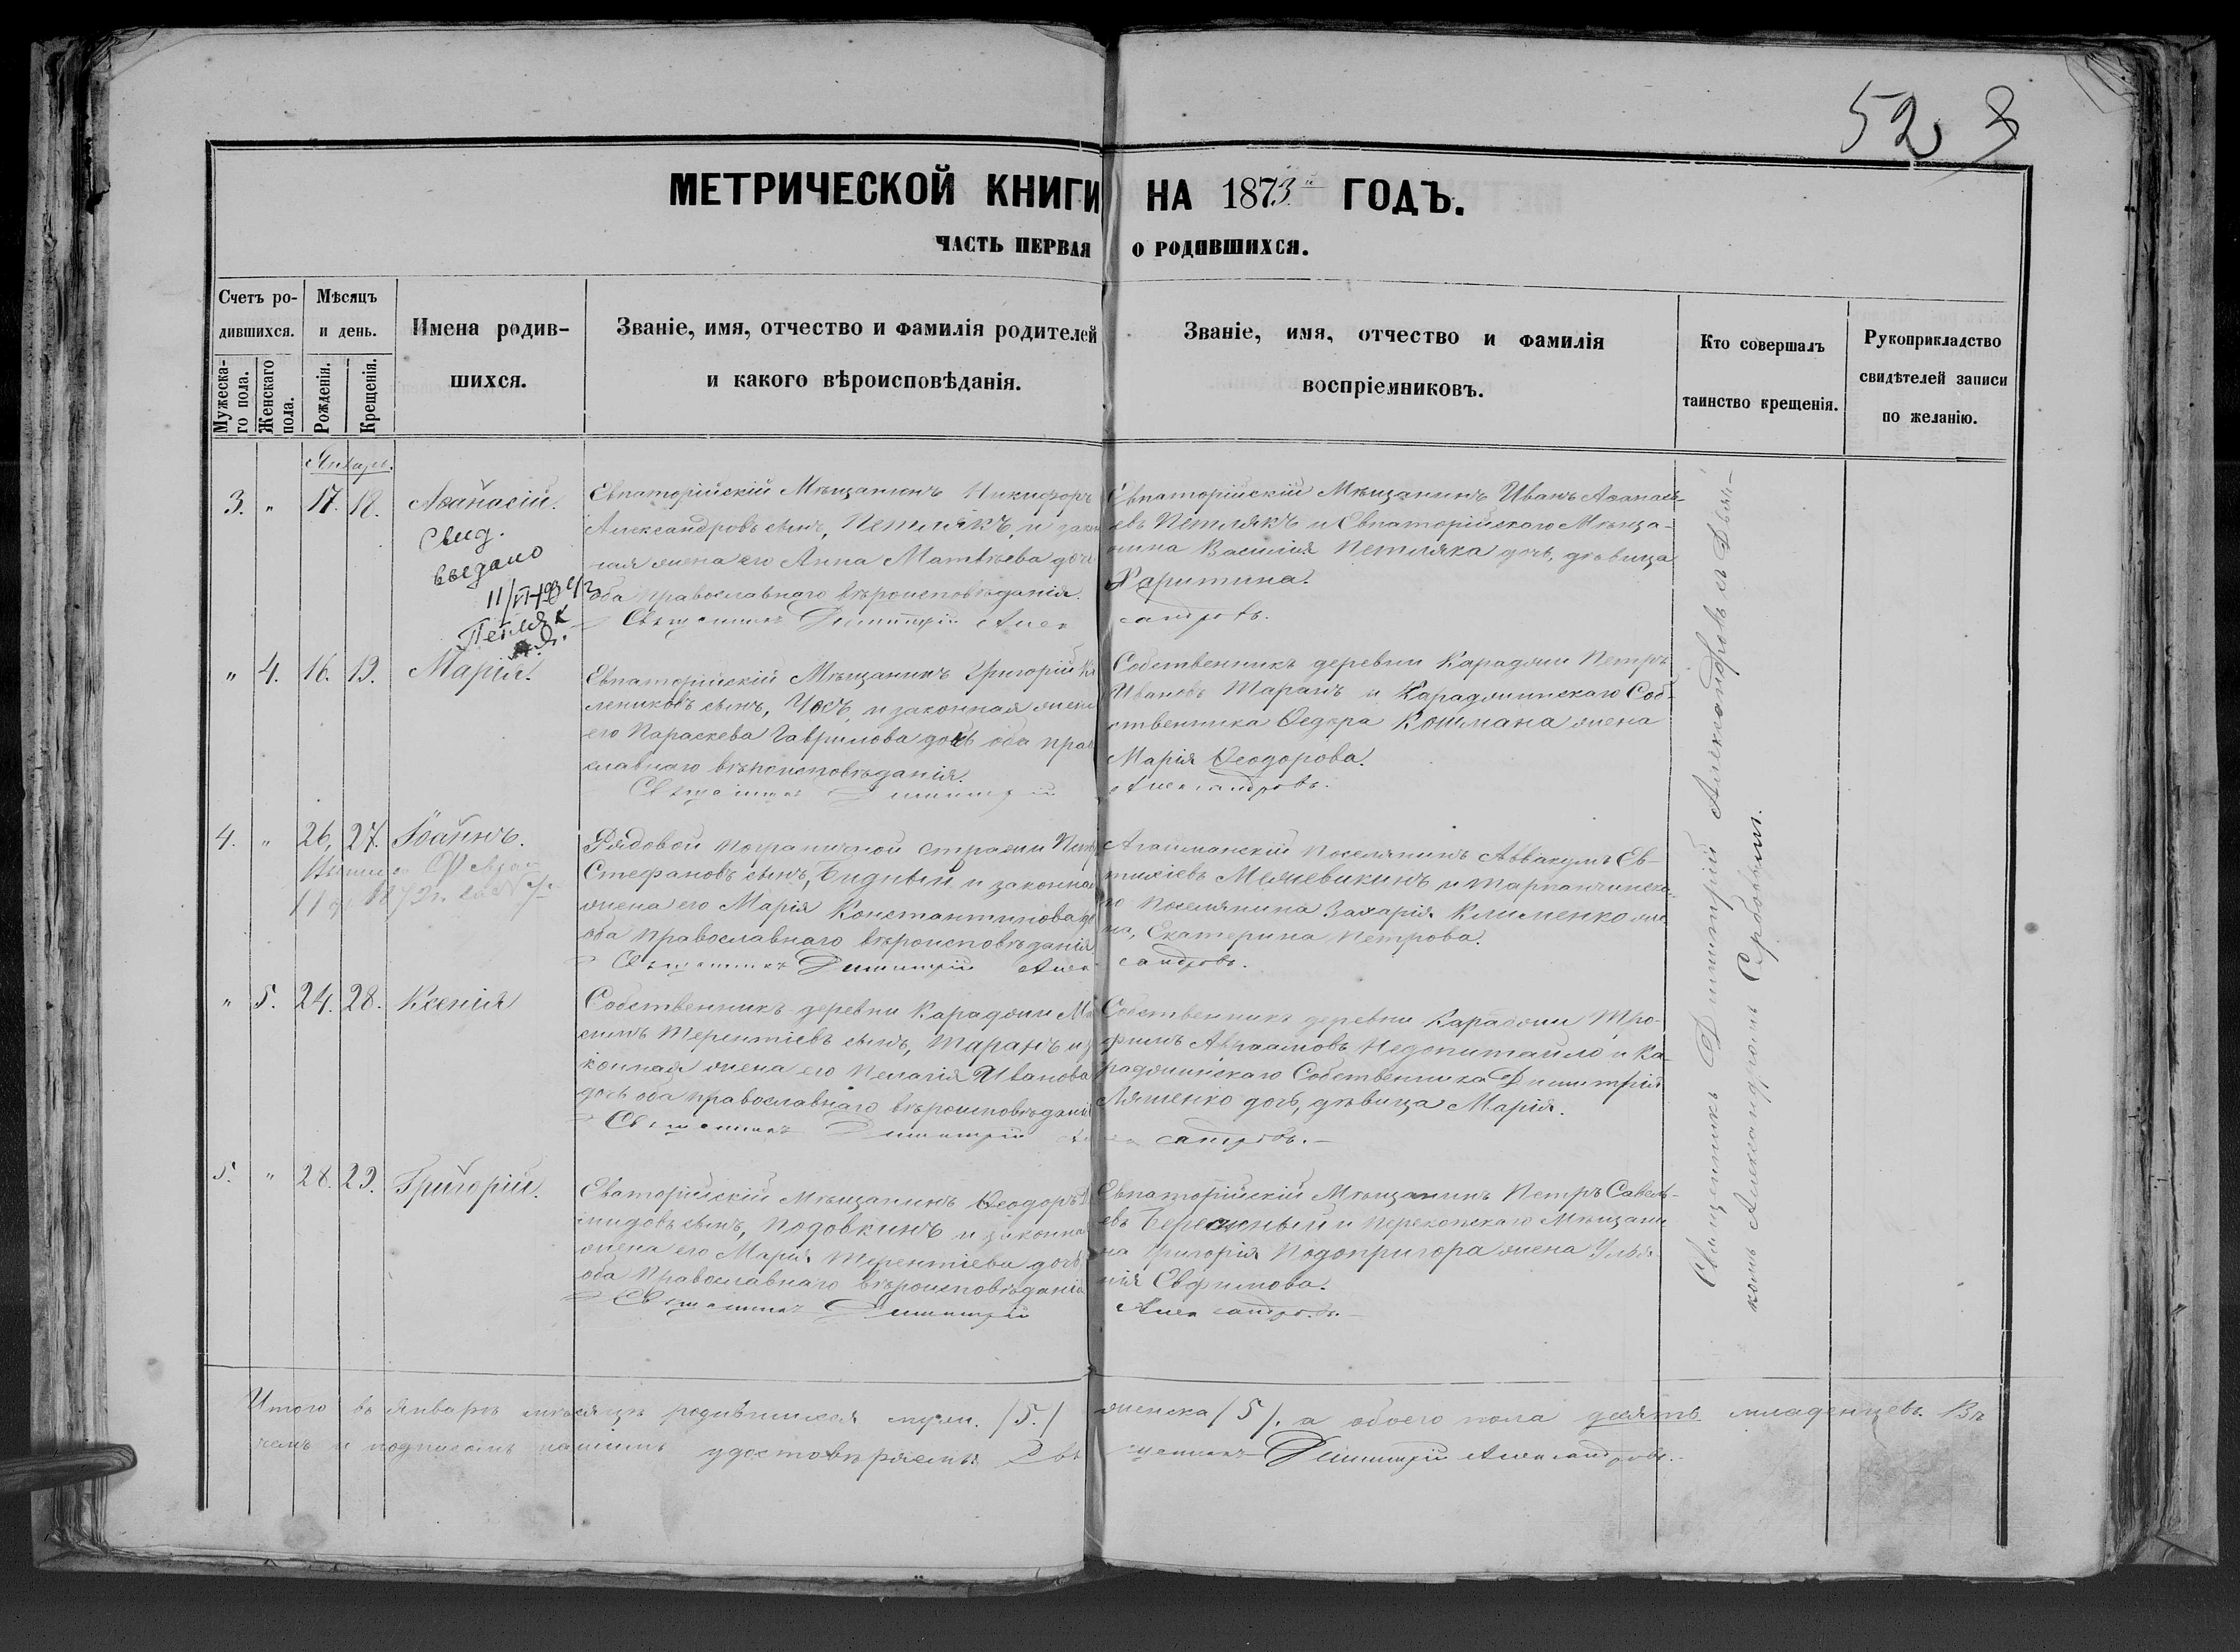 52 3
МЕТРИЧЕСКОЙ КНИГИ НА 1873й ГОДЪ.
ЧАСТЬ ПЕРВАЯ О РОДИВШИХСЯ.
Счетъ ро-
дившихся.
Мужеска-
го пола.
Женскаго
пола.
Мѣсяцъ
и день.
Рожденія.
Крещенія.
Имена родив-
шихся.
Званіе, имя, отчество и фамилія родителей
и какого вѣроисповѣданія.
Званіе, имя, отчество и фамилія
воспріемниковъ.
Кто совершалъ
таинство крещенія.
Рукоприкладство
свидѣтелей записи
по желанію.
Январь.
3. " 17. 18. Аѳанасій.
Свид.
выдано
Петляк
Евпаторійскій Мѣщанинъ Никифоръ
Александровъ сынъ, Петлякъ, и закон
ная жена его Анна Матвѣева дочь
оба православнаго вѣроисповѣданія.
Священникъ Димитрій Алек
Евпаторійскій Мѣщанинъ Иванъ Аѳанась-
евъ Петлякъ и Евпаторійскаго Мѣща-
нина Василія Петляка дочь, дѣвица
Харитина.
сандровъ.
" 4. 16. 19. Марія.
Евпаторійскій Мѣщанинъ Григорій Кл
лениковъ сынъ, Чосъ, и законная жена
его Параскева Гаврилова дочь оба прав
славнаго вѣроисповѣданія.
Священникъ Димитрій
Собственникъ деревни Караджи Петръ
Ивановъ Таранъ и Караджинскаго Соб-
ственника Ѳедора Кошмана жена
Марія Ѳеодорова.
Александровъ.
4. " 26. 27. Іоаннъ.
Рядовой пограничной стражи Петръ
Стефановъ сынъ, Бидный и законная
жена его Марія Константинова
оба православнаго вѣроисповѣданія
Священникъ Димитрій Алек
Агайманскій поселянинъ Аввакумъ Ев-
тихіевъ и Тарханчинска-
го поселянина Захарія Клименко же
на, Екатерина Петрова.
сандровъ.
" 5. 24. 28. Ксенія
Собственникъ деревни Караджи Ма
симъ Терентіевъ сынъ, Таранъ и з
конная жена его Пелагія Иванова
дочь оба православнаго вѣроисповѣданія
Священникъ Димитрій Ал
Собственникъ деревни Караджи Тро-
фимъ Авраамовъ Недопитайло и Ка-
раджинскаго Собственника Димитрія
Ляшенко дочь, дѣвица Марія.
сандровъ.
5. " 28. 29. Григорій.
Еваторійскій Мѣщанинъ Ѳеодоръ
мидовъ сынъ, Подовкинъ и законная
жена его Марія Терентіева дочь
оба Православнаго вѣроисповѣданія
Священникъ Димитрій
Евпаторійскій Мѣщанинъ Петръ Савель-
евъ и Перекопскаго Мѣщани
на Григорія Подопригора жена Улья
нія Евфимова.
Александровъ.
Священникъ Димитрій Александровъ съ Дьяч-
комъ Александромъ Сербовымъ.
Итого въ январѣ мѣсяцѣ родившихся муж. /5./ женска /5/, а обоего пола десять младенцевъ. Въ
чемъ и подписомъ нашимъ удостовѣряемъ Священникъ Димитрій Александровъ.